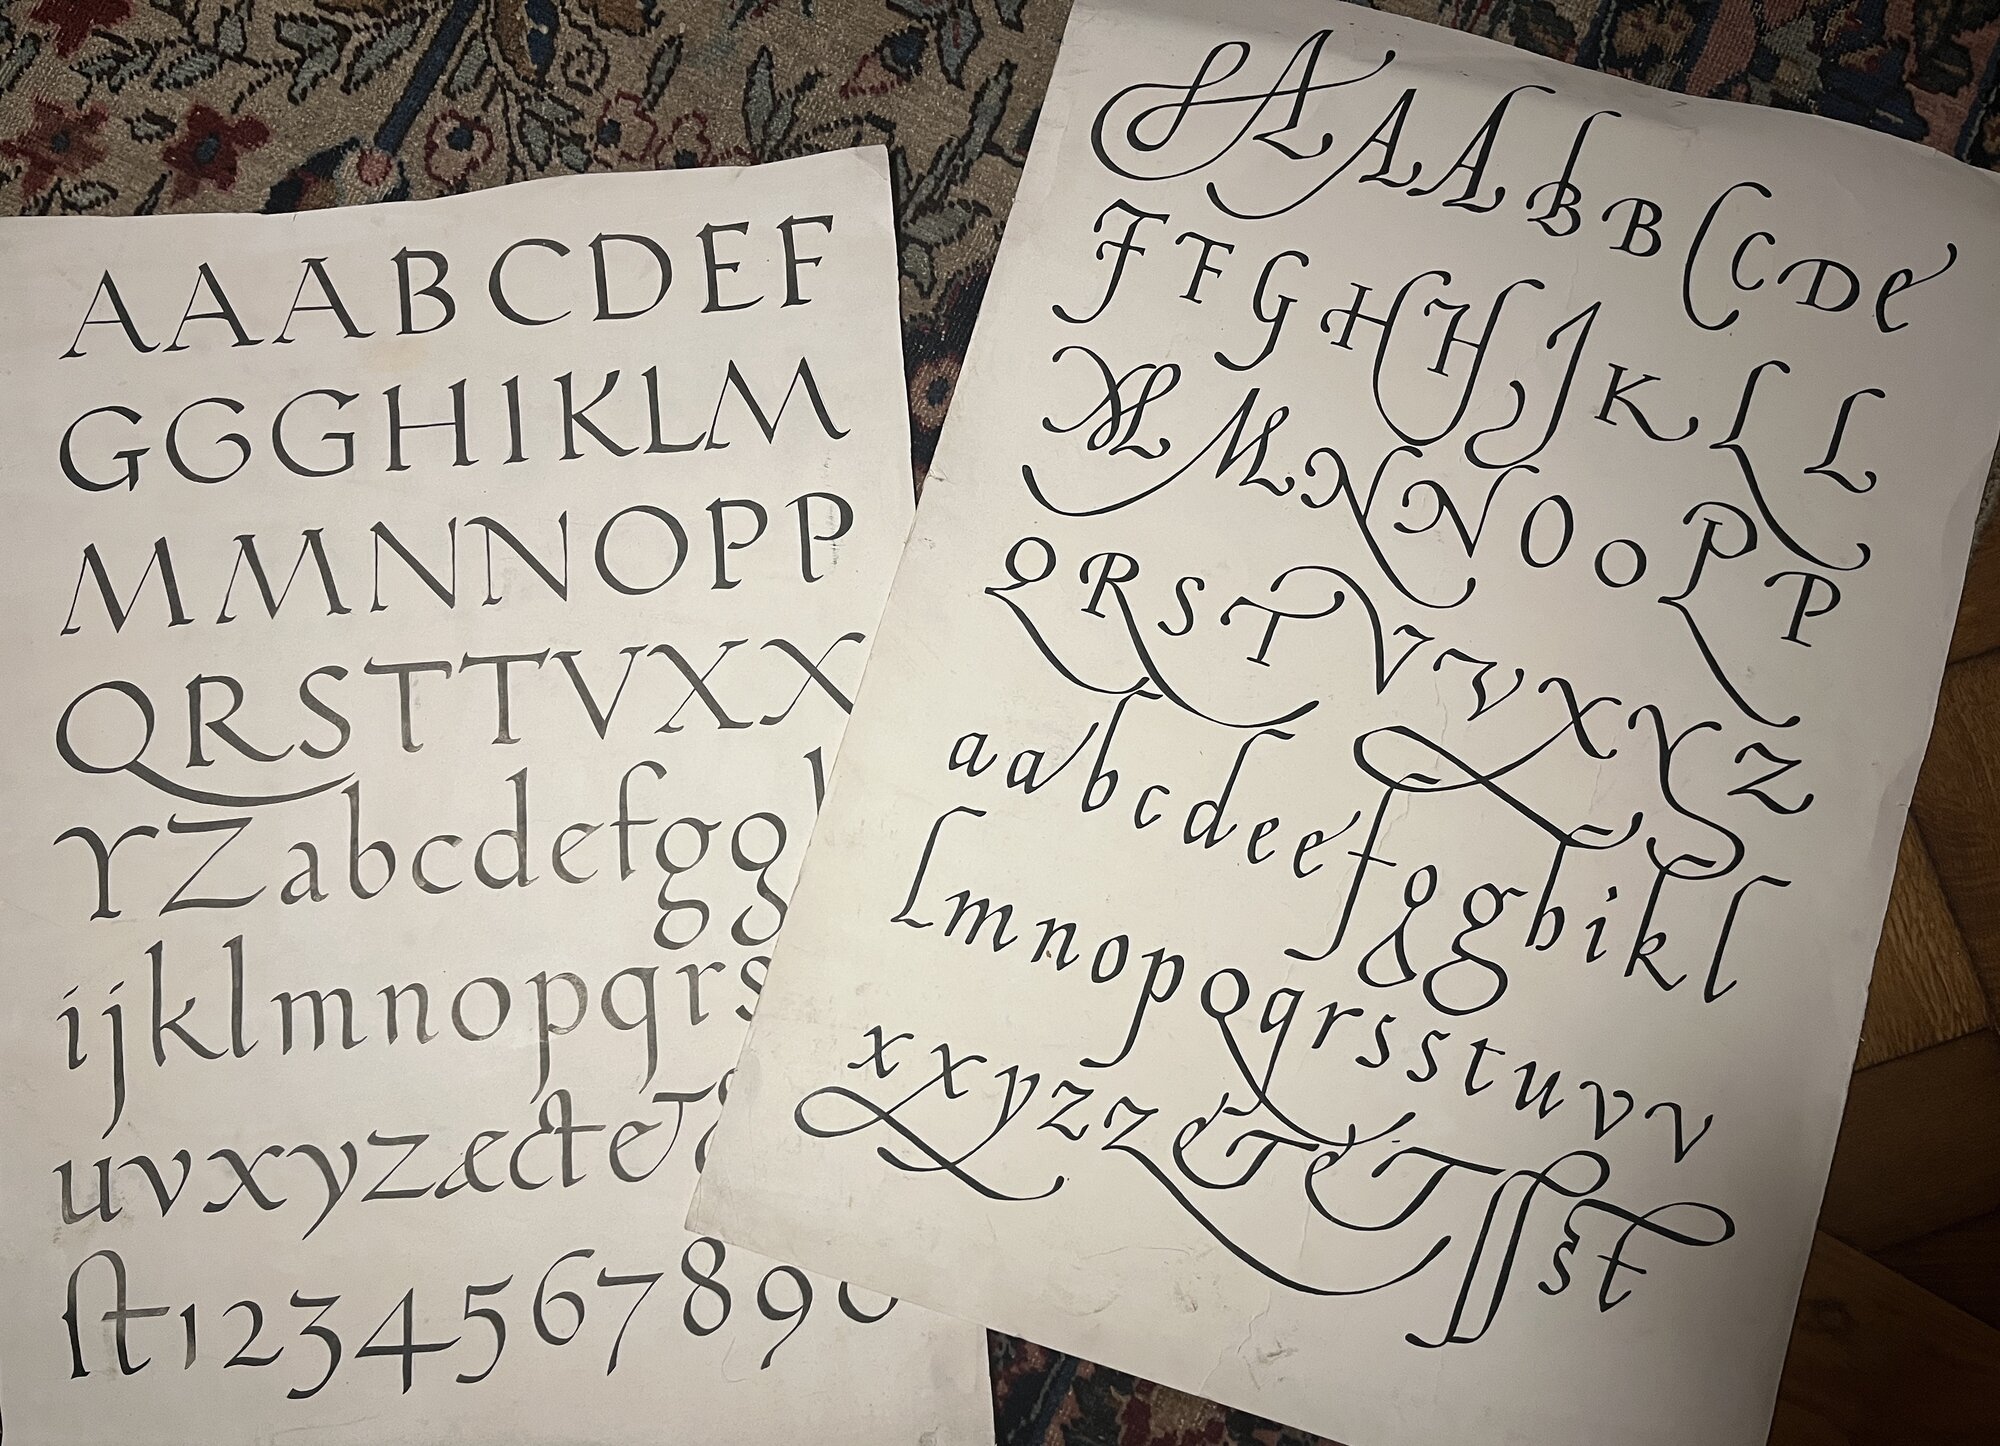 AAABCDEF
GGGHIKLM
MMNNOPP
QRSTTVXX
YZabcdefgg
ijklmnopqrs
uvxyzæct&
ſt1234567890
AAABBCCDE
FFGHHJKLL
MMNNOOPP
QRSTVVXYZ
aabcdeefgghikl
lmnopqqrsstuvv
xxyzz&&ſſst